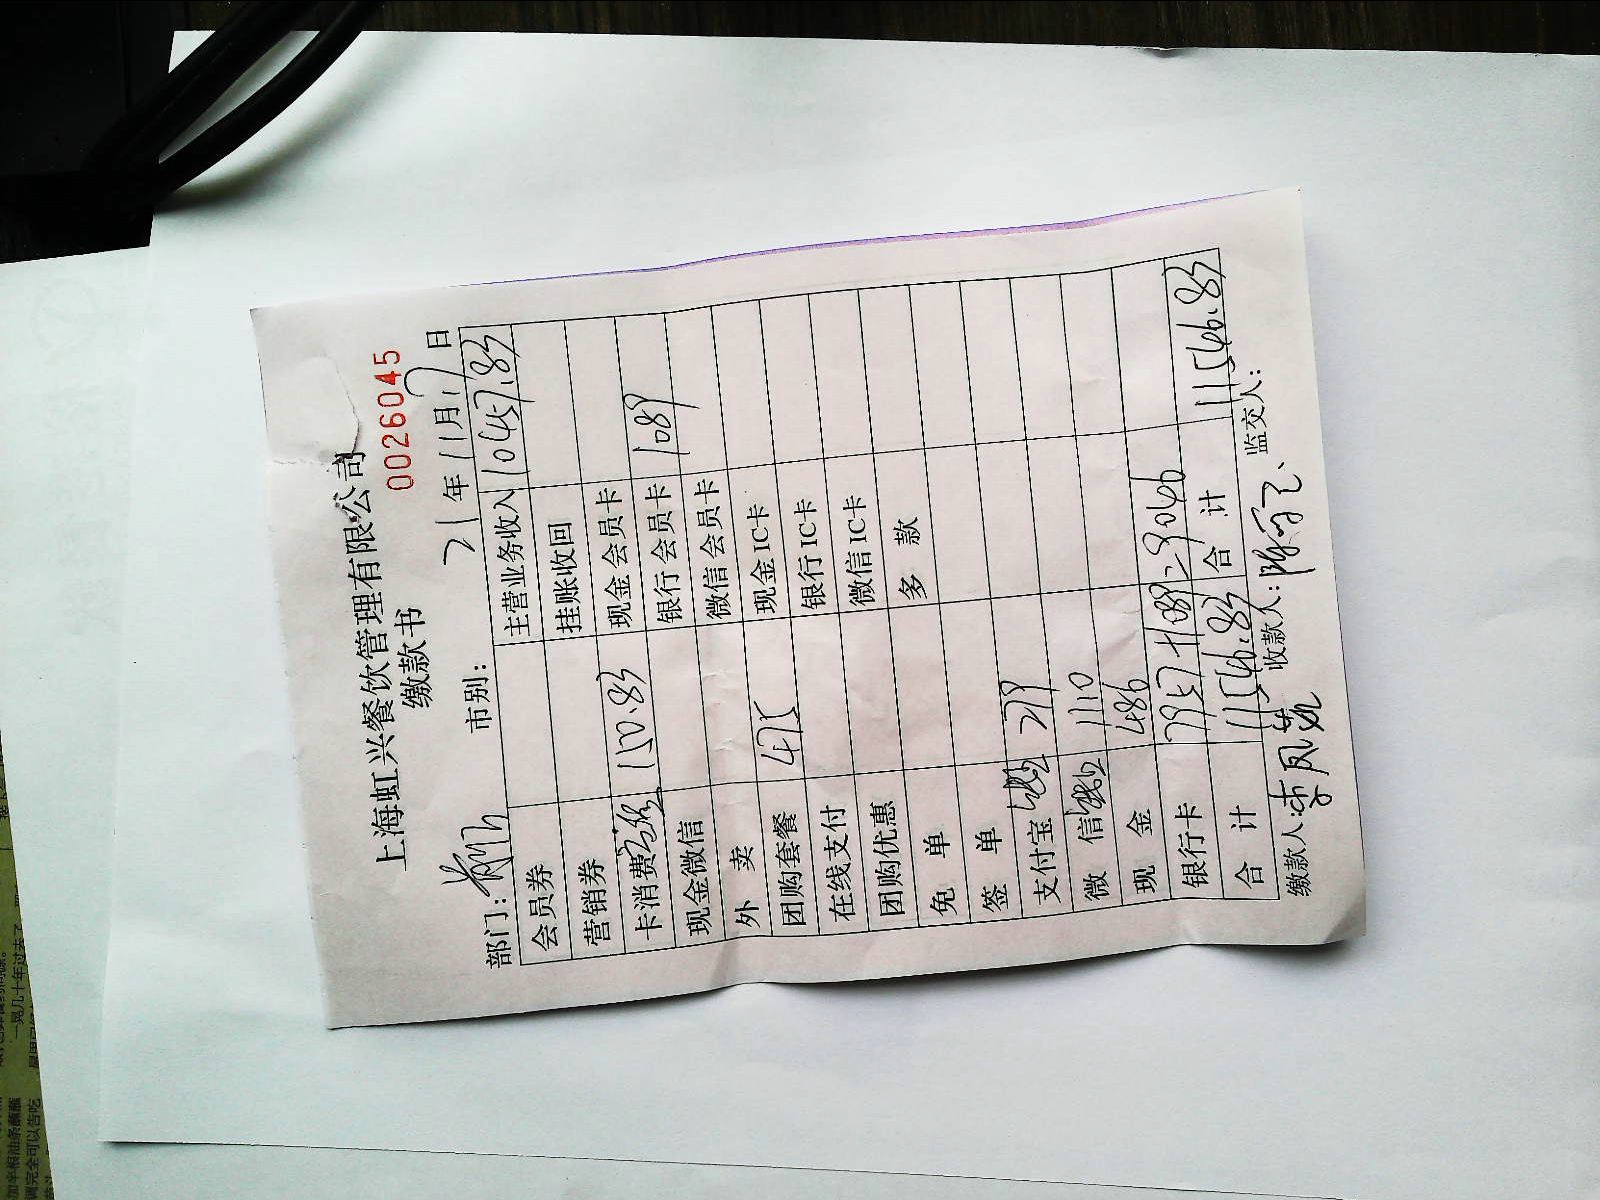 上海虹兴餐饮管理有限公司
缴款书
0026045
部门: 市别: 21年11月17日
会员券 主营业务收入 10457.83
营销券 挂账收回
卡消费 150.83 现金会员卡
现金微信 银行会员卡 1089
外卖 微信会员卡
团购套餐 475 现金IC卡
在线支付 银行IC卡
团购优惠 微信IC卡
免单 多款
签单
支付宝 279
微信 1110
现金 486
银行卡 7957+1089=9046
合计 11546.83 合计 11546.83
缴款人: 收款人: 监交人:
一晃几十年过去了